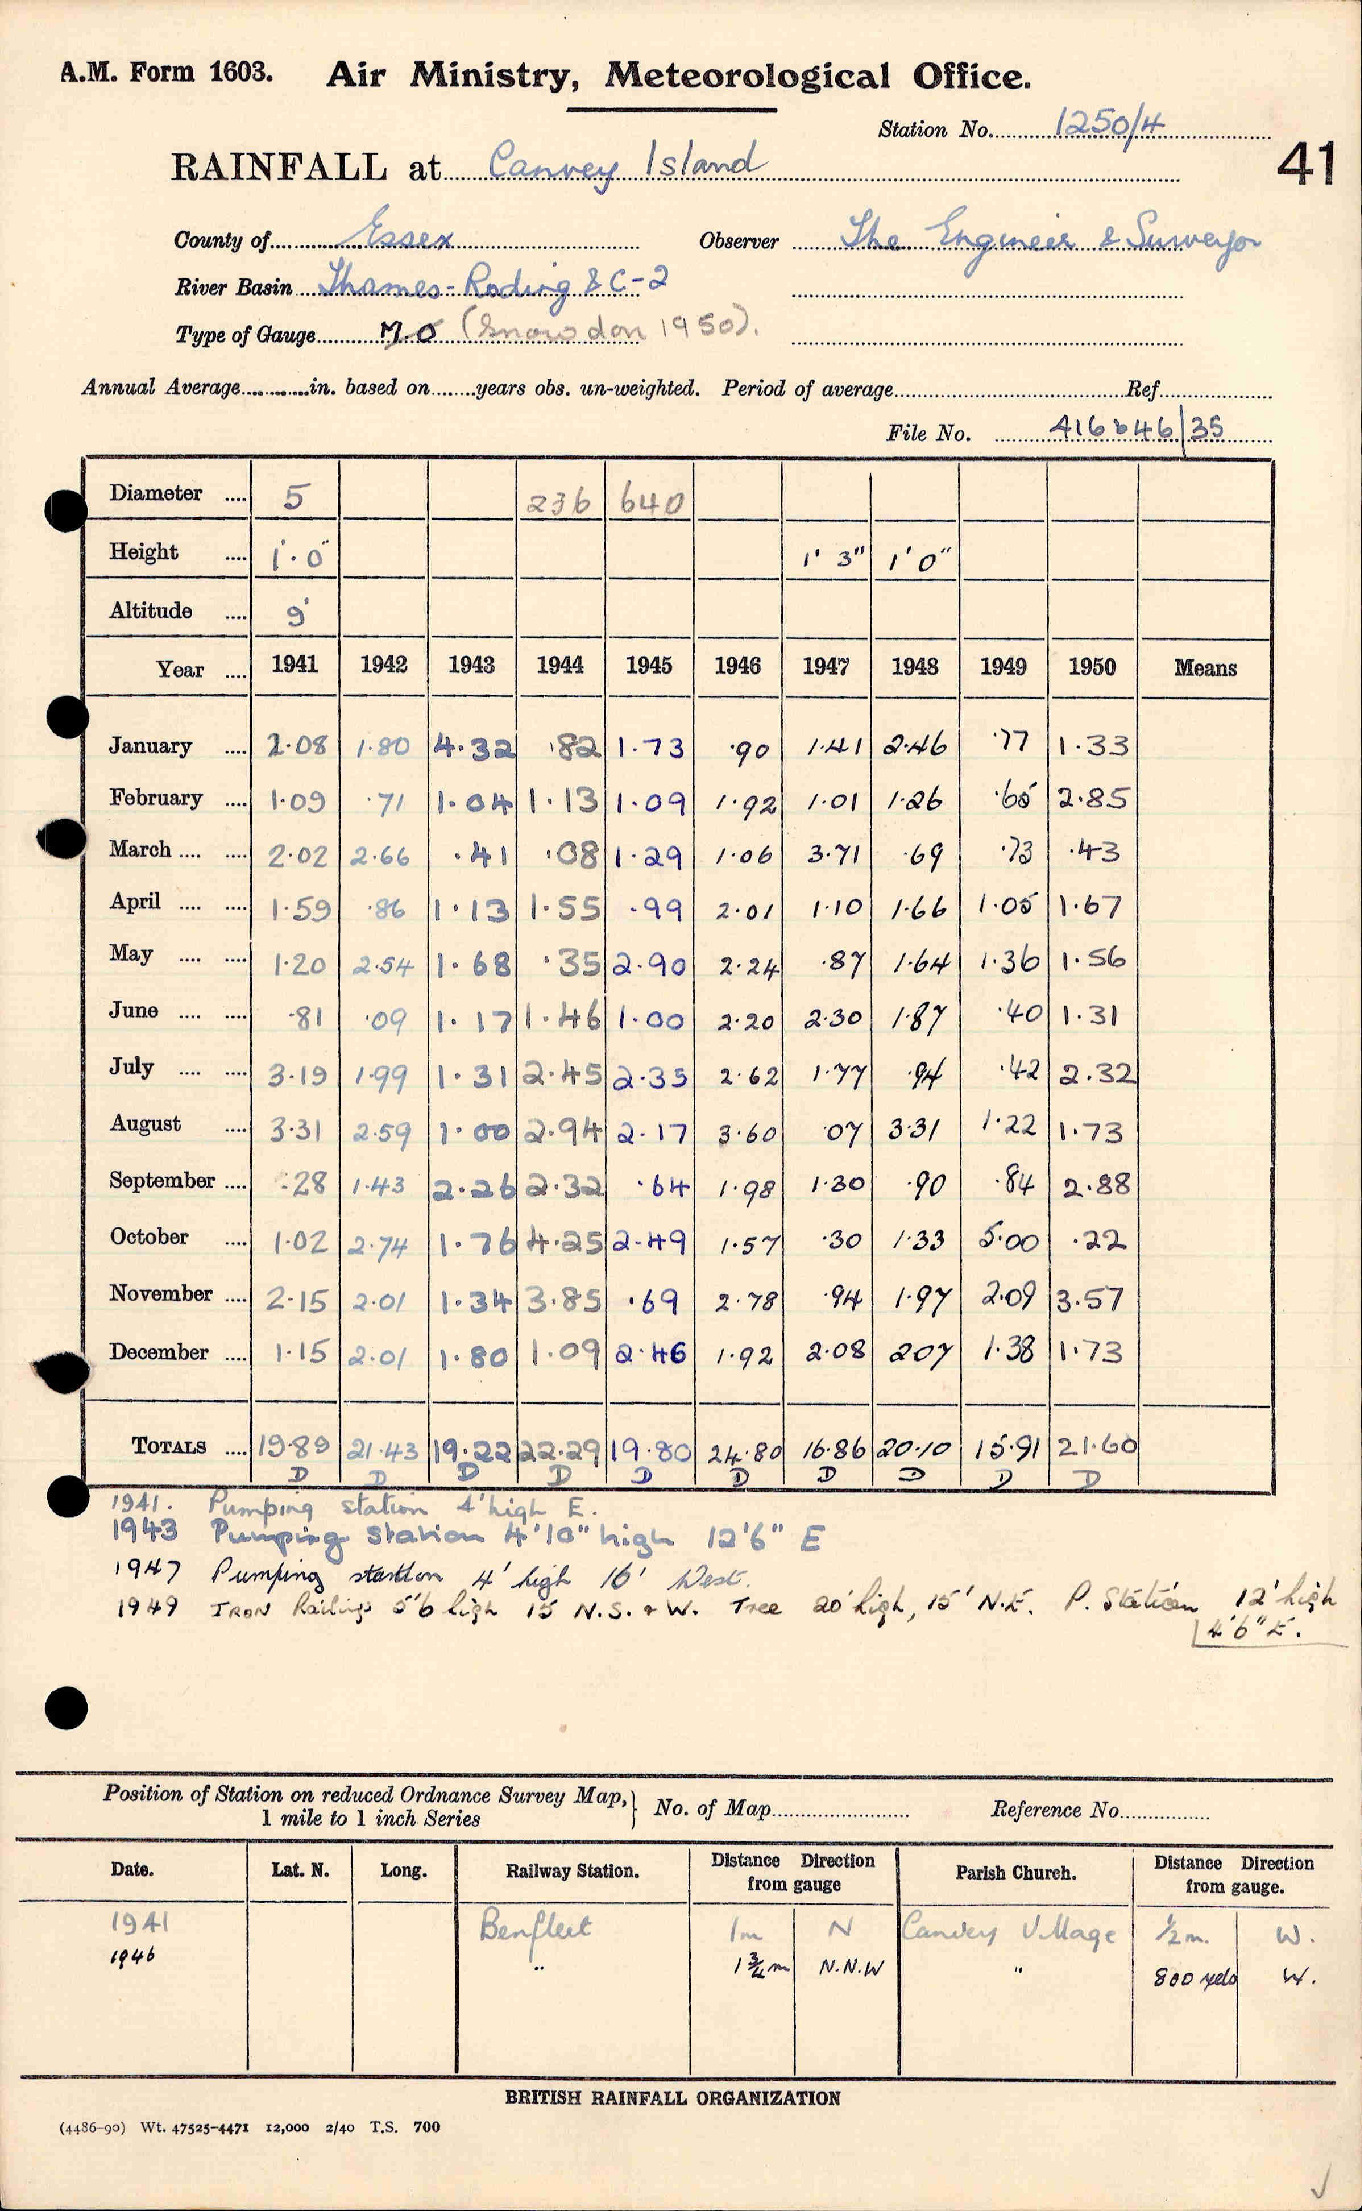 A.M. Form 1603. Air Ministry, Meteorological Office.
Station No. 1250/4
41
RAINFALL at Canvey Island
County of Essex Observer The Engineer & Surveyor
River Basin Thames-Roding & C-2
Type of Gauge M.O (Snowdon 1950).
Annual Average............in. based on.......years obs. un-weighted. Period of average............Ref............
File No. 416646/35
Diameter .... 5 236 640
Height .... 1'.0" 1' 3" 1' 0"
Altitude .... 9'
Year .... 1941 1942 1943 1944 1945 1946 1947 1948 1949 1950 Means
January .... 2.08 1.80 4.32 .82 1.73 .90 1.41 2.46 .77 1.33
February .... 1.09 .71 1.04 1.13 1.09 1.92 1.01 1.26 .65 2.85
March .... .... 2.02 2.66 .41 .08 1.29 1.06 3.71 .69 .73 .43
April .... .... 1.59 .86 1.13 1.55 .99 2.01 1.10 1.66 1.05 1.67
May .... .... 1.20 2.54 1.68 .35 2.90 2.24 .87 1.64 1.36 1.56
June .... .... .81 .09 1.17 1.46 1.00 2.20 2.30 1.87 .40 1.31
July .... .... 3.19 1.99 1.31 2.45 2.35 2.62 1.77 .94 .42 2.32
August .... 3.31 2.59 1.00 2.94 2.17 3.60 .07 3.31 1.22 1.73
September .... .28 1.43 2.26 2.32 .64 1.98 1.30 .90 .84 2.88
October .... 1.02 2.74 1.76 4.25 2.49 1.57 .30 1.33 5.00 .22
November .... 2.15 2.01 1.34 3.85 .69 2.78 .94 1.97 2.09 3.57
December .... 1.15 2.01 1.80 1.09 2.46 1.92 2.08 207 1.38 1.73
TOTALS .... 19.89 21.43 19.22 22.29 19.80 24.80 16.86 20.10 15.91 21.60
D D D D D D D D D D
1941. Pumping station 4' high E.
1943 Pumping Station 4'10" high 12'6" E
1947 Pumping station 4' high 16' West.
1949 IRON Railings 5'6 high 15 N.S. & W. Tree 20' high, 15' N.E. P. Station 12' high
4'6" E.
Position of Station on reduced Ordnance Survey Map, 1 mile to 1 inch Series } No. of Map............ Reference No............
Date. Lat. N. Long. Railway Station. Distance Direction from gauge Parish Church. Distance Direction from gauge.
1941 Benfleet 1m N Canvey Village 1/2 m. W.
1946 " 1 3/4 m N.N.W " 800 yds W.
BRITISH RAINFALL ORGANIZATION
(4486-90) Wt. 47525-4471 12,000 2/40 T.S. 700